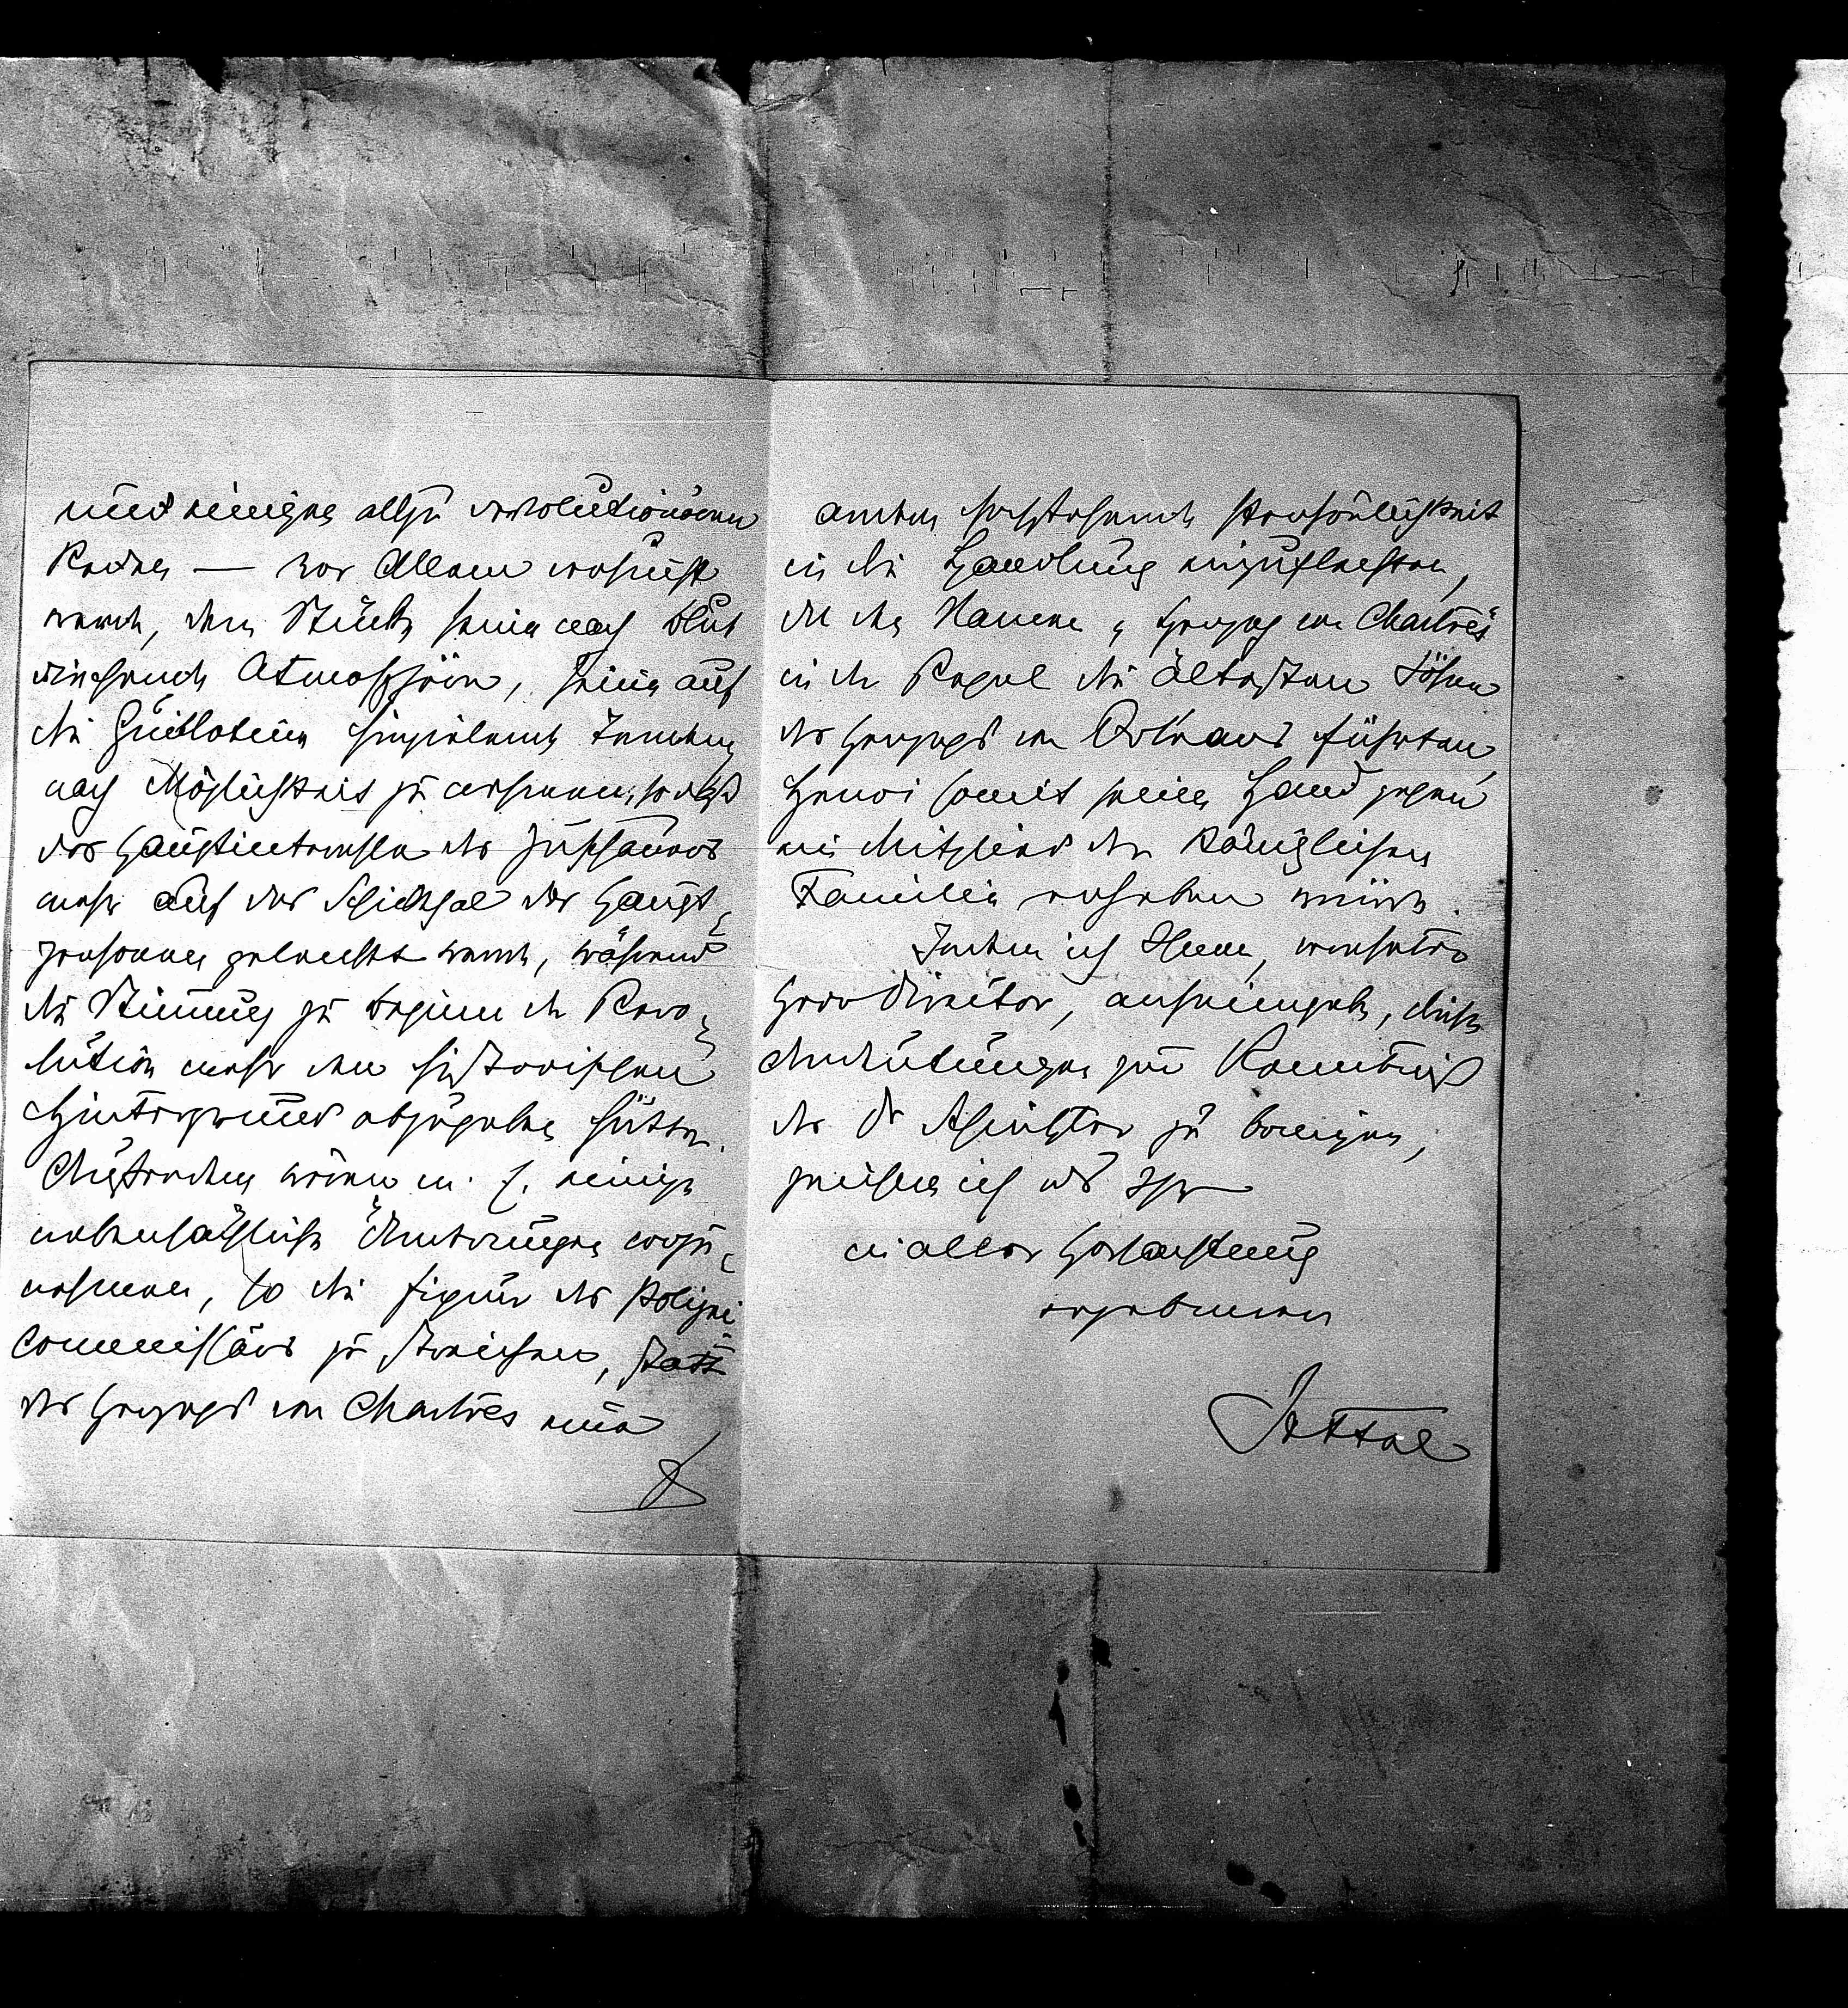 und einiger allzu revolutionären
Reden — vor Allem erwünscht
wäre, dem Stücke seine nach Blut
riechende Atmosphäre, seine auf
die Guillotine hinzielende Tendenz
nach Möglichkeit zu nehmen, so daß
das Hauptinteresse des Zuschauers
mehr auf das Schicksal der Haupt-
personen gelenkt werde, während
die Stimmung zu Beginn der Revo-
lution mehr den historischen
Hintergrund abzugeben hätte.
Außerdem wären m. E. einige
nebensächliche Änderungen vorzu-
nehmen, so die Figur des Polizei
Commissärs zu streichen, statt
des Herzogs von Chartres eine
andere hochstehende Persönlichkeit
in die Handlung einzuflechten,
da den Namen „Herzog von Chartres"
in der Regel die ältesten Söhne
des Herzogs von Orleans führten,
Henri somit seine Hand gegen
ein Mitglied der königlichen
Familie erheben würde.
Indem ich Ihnen, verehrter
Herr Direktor, anheimgebe, diese
Andeutungen zur Kenntniß
des Dr zu bringen,
zeichne ich als Ihr
in aller Hochachtung
ergebener
Jettel